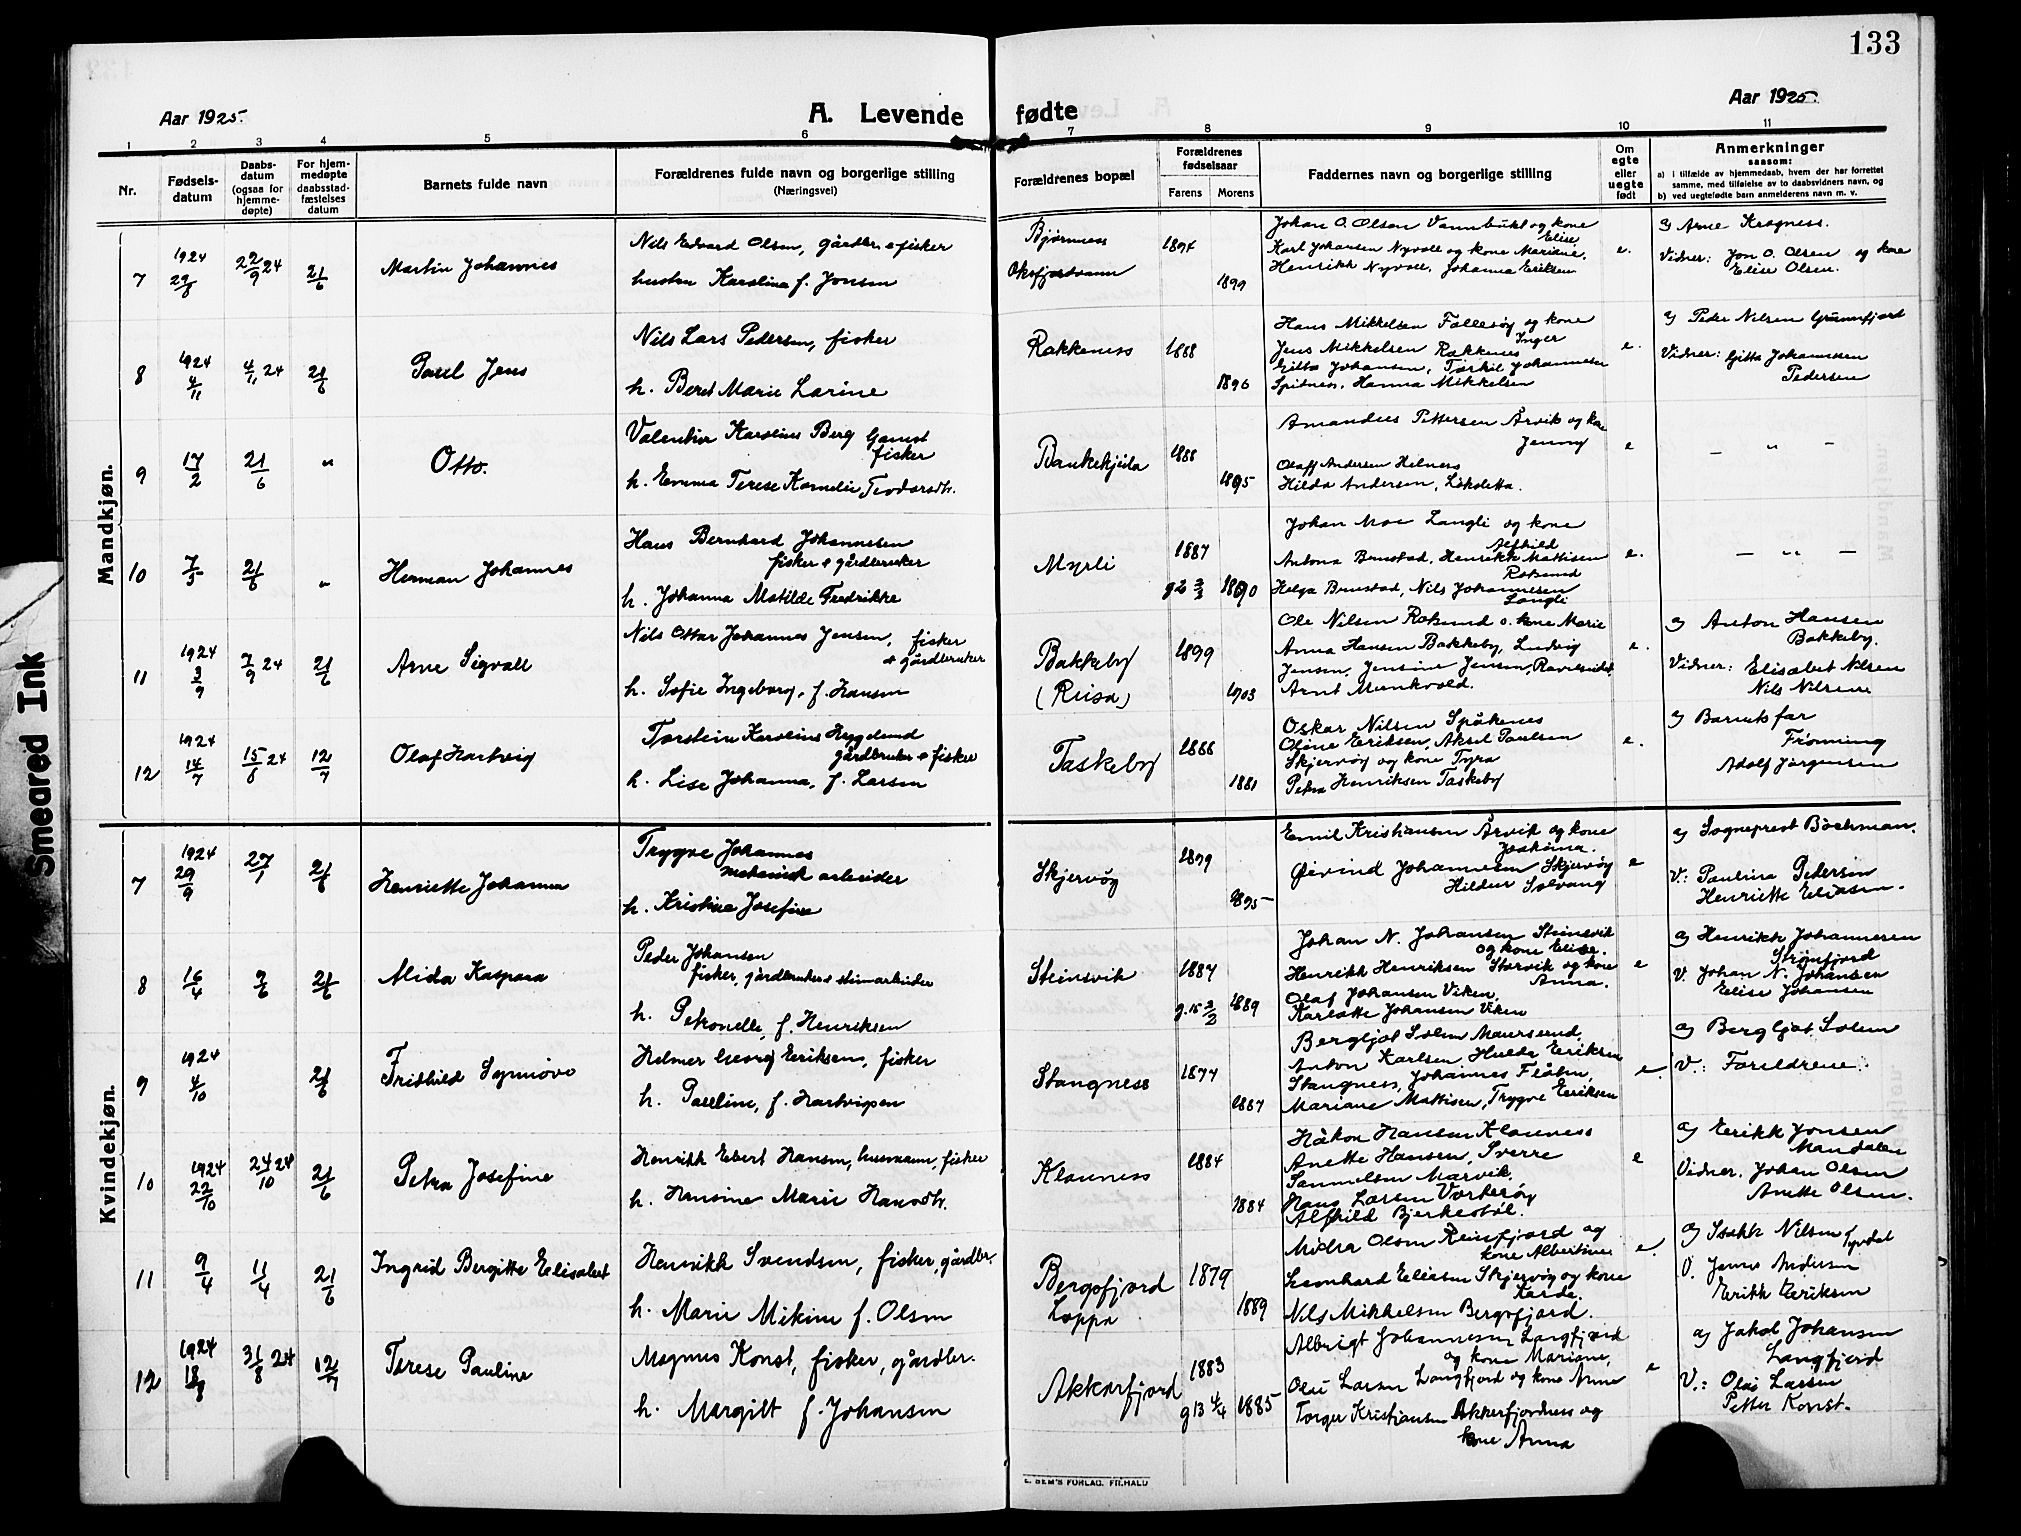 133
Aar 1925.
A. Levende
fødte
Aar 1925.
1 2 3 4 5 6 7 8 9 10 11
Nr.
Fødsels-
datum
Daabs-
datum
(ogsaa for
hjemme-
døpte)
For hjem-
medøpte
daabsstad-
fæstelses
datum
Barnets fulde navn
Forældrenes fulde navn og borgerlige stilling
(Næringsvei)
Forældrenes bopæl
Forældrenes
fødselsaar
Farens Morens
Faddernes navn og borgerlige stilling
Om
egte
eller
uegte
født
Anmerkninger
saasom:
a) i tilfælde av hjemmedaab, hvem der har forrettet
samme, med tilføielse av to daabsvidners navn, og
b) ved uegtefødte barn anmelderens navn m. v.
Mandkjøn.
7
1924
22/9 24
21/6
Martin Johannes
Nils Edvard Olsen, gårdbr. & fisker
hustru Karolina f. Jonsen
Bjørnnes
Oksfjordvann
1894
1899
Johan O. Olsen Vannbukt og kone
Elise
Karl Johansen Nyvoll og kone Mariane,
Henrikk Nyvoll, Johanna Eriksen
e.
a) Arne Kragness.
Vidner: Jon O. Olsen og kone
Elise Olsen.
8
1924
4/11
4/11 24
21/6
Paul Jens
Nils Lars Pedersen, fisker
h. Beret Marie Larine
Rakkeness
1888
1896
Hans Mikkelsen Follesøy og kone
Inger
Jens Mikkelsen Rakkenes
Gitta Johansen, Torkil Johannesen
Spitnes, Hanna Mikkelsen
e.
a) Peder Nilsen Grunnfjord
Vidner: Gitta Johannesen
Pedersen
9
17/2
21/6
"
Otto.
Valentin Karolius Berg Gamst
fisker
h. Emma Terese Kornelie Teodorsdtr.
Baukekjeila
1888
1895
Amandus Pettersen Årvik og kone
Jenny
Olaff Andersen Helnes
Hilda Andersen, Lökoletta.
e
— " —
10
7/5
21/6
"
Herman Johannes
Hans Bernhard Johannesen
fisker & gårdbruker
h. Johanna Matilde Fredrikke
Myrli
1887
1890
Johan Moe Langli og kone
Alfhild
Antona Brustad, Henrikk Mattisen
Rotsund
Helga Brustad, Nils Johannesen
Langli
e.
— " —
11
1924
3/9
7/9 24
21/6
Arne Sigvall
Nils Ottar Johannes Jensen, fisker
& gårdbruker
h. Sofie Ingeborg, f. Hansen
Bakkeby
(Reisa)
1899
1903
Ole Nilsen Rotsund o. kone Marie
Anna Hansen Bakkeby, Ludvig
Jensen, Jensine Jensen, Ravelseidet,
Arnt Munkvold.
e.
a) Anton Hansen
Bakkeby.
Vidner: Elisabet Nilsen
Nils Nilsen
12
1924
14/7
15/8 24
12/7
Olaf Hartvig
Torstein Karolius Hygelund
gårdbruker & fisker
h. Lise Johanna, f. Larsen
Taskeby
1866
1881
Oskar Nilsen Spåkenes
Oline Eriksen, Aksel Paulsen
Skjervøy og kone Tyra
Petra Henriksen Taskeby
e.
a) Barnets far
Frøming
Adolf Jørgensen
Kvindekjøn.
7
1924
29/9
27/1
21/6
Henriette Johanna
Trygve Johannes
mekanisk arbeider
h. Kristine Josefine
Skjervøy
1899
1895
Emil Kristiansen Årvik og kone
Joakima.
Øivind Johannesen Skjervøy
Hildur Solvang
e
a) Sogneprest Bochman.
V.: Paulina Pedersen
Henriette Eliasen.
8
16/4
7/6
21/6
Alida Kaspara
Peder Johansen
fisker, gårdbruker & stenarbeider
h. Petronelle, f. Henriksen
Steinsvik
1887
1889
Johan N. Johansen Steinsvik
og kone Elise.
Henrikk Henriksen Storvik og kone
Anna.
Olaf Johansen Viken
Karlotte Johansen Viken
e
a) Henrikk Johannesen
Strømfjord
V. Johan N. Johansen
Elise Johansen
9
1924
4/10
21/6
Fridhild Synnöve
Helmer Georg Eriksen, fisker
h. Pauline, f. Hartvigsen
Stangness
1877
1887
Bergljot Solem Maursund,
Anton Karlsen, Hulda Eriksen
Stangness, Johannes Flåten,
Mariane Mattisen, Trygve Eriksen
e.
a) Bergljot Solem
V.: Foreldrene.
10
1924
22/10
24/10 24
21/6
Petra Josefine
Henrikk Ebert Hansen, husmann, fisker
h. Hansine Marie Hansdtr.
Klauness
1884
1884
Håkon Hansen Klauness
Anette Hansen, Sverre
Samuelsen Marvik,
Hans Larsen Vorterøy
Alfhild Bjerkestöl.
e
a) Erikk Jonsen
Mandalen
Vidner. Johan Olsen
Anette Olsen.
11
9/4
11/4
21/6
Ingrid Bergitte Elisabet
Henrikk Svendsen, fisker, gårdbr.
h. Marie Mikine f. Olsen
Bergsfjord
Loppa
1879
1889
Olsen Reinfjord og
kone Albertine
Leonhard Eliasen Skjervøy og kone
Karda.
Nils Mikkelsen Bergsfjord.
e.
a) Isakk Nilsen
V. Jonas Andersen
Erikk Eriksen
12
1924
18/8
31/8 24
12/7
Terese Pauline
Magnus Konst, fisker, gårdbr.
h. Margitt f. Johansen
Akkarfjord
1883
g 13 4/4
1885
Albrigt Johannesen Langfjord
og kone Mariane,
Olai Larsen Langfjord og kone Anne
Torger Kristiansen Akkarfjordnes og
kone Anna
e
a) Jakob Johansen
Langfjord
V.: Olai Larsen
Petter Konst.
E. SEM'S FORLAG. FR.HALD
Smeared Ink